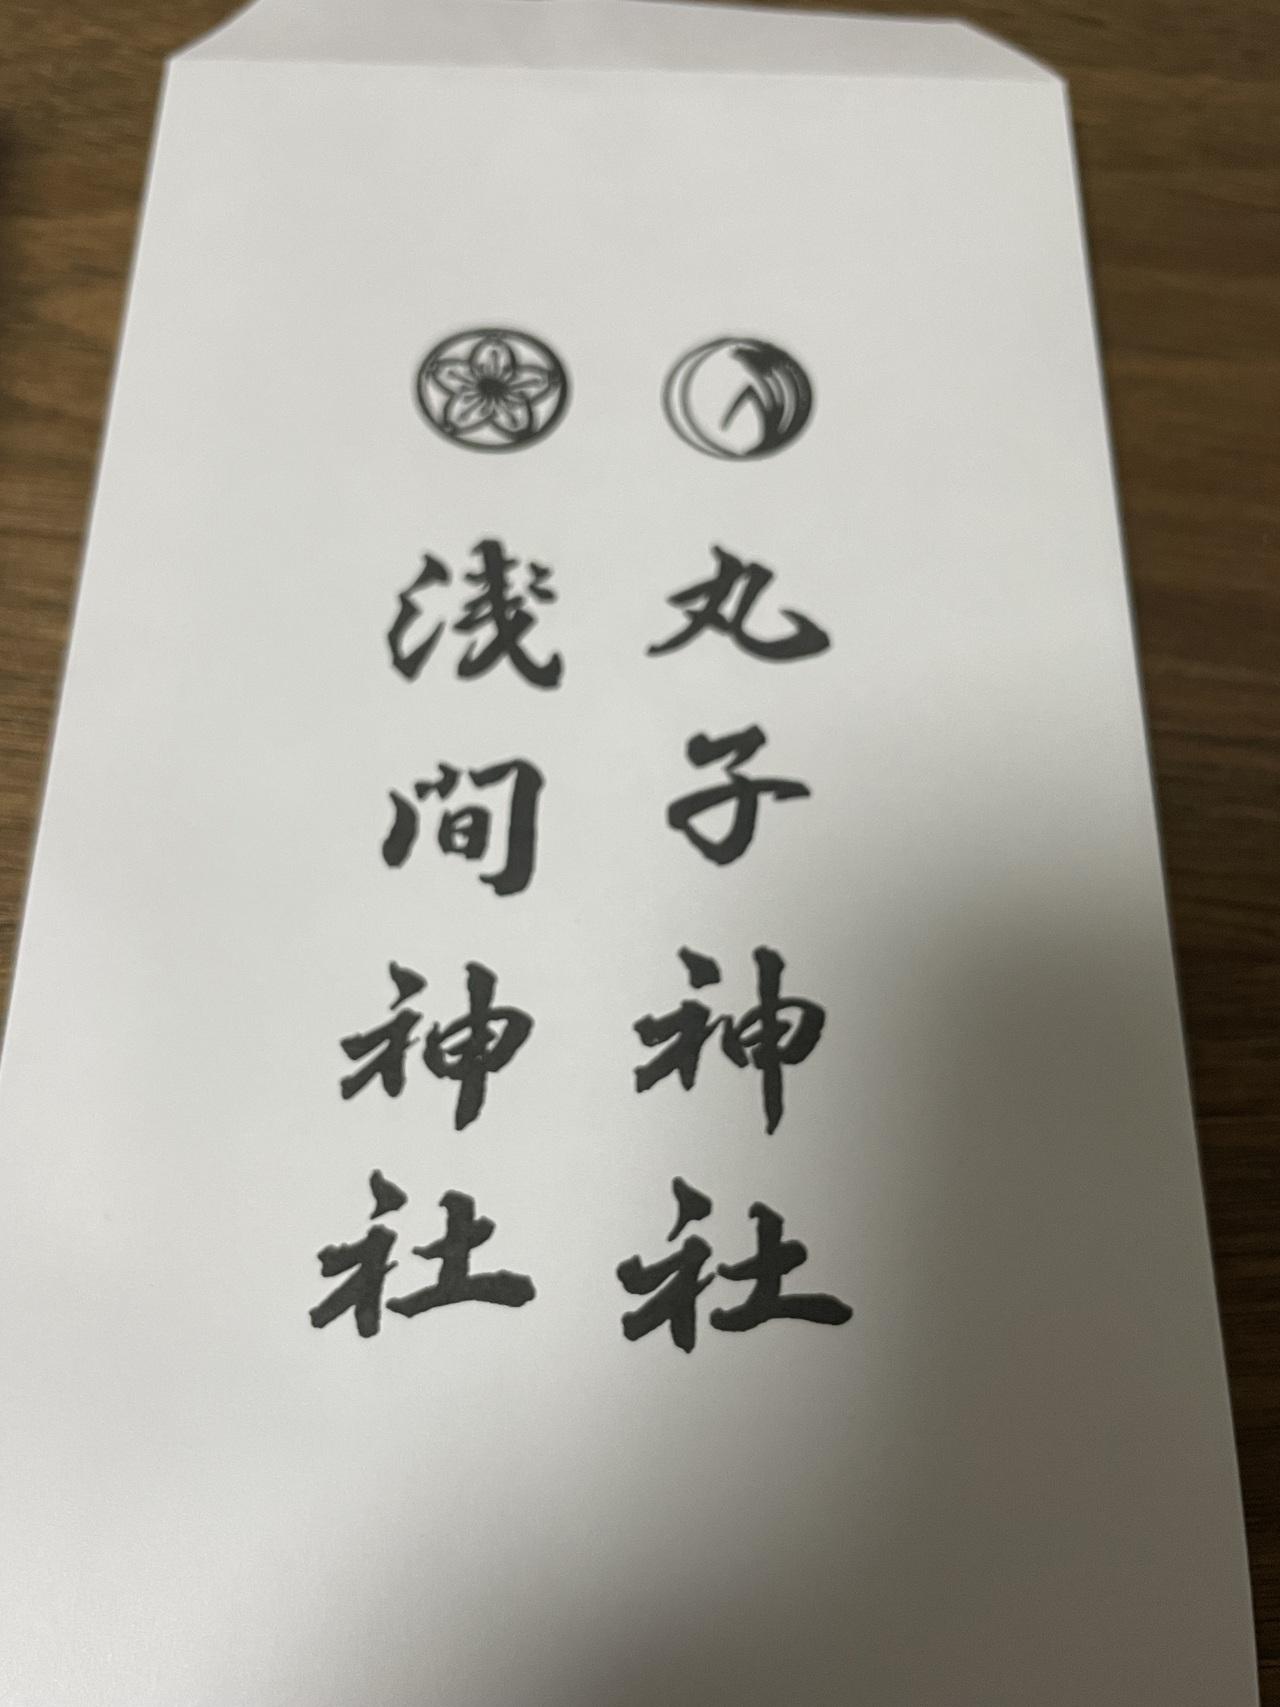 丸子神社
浅間神社